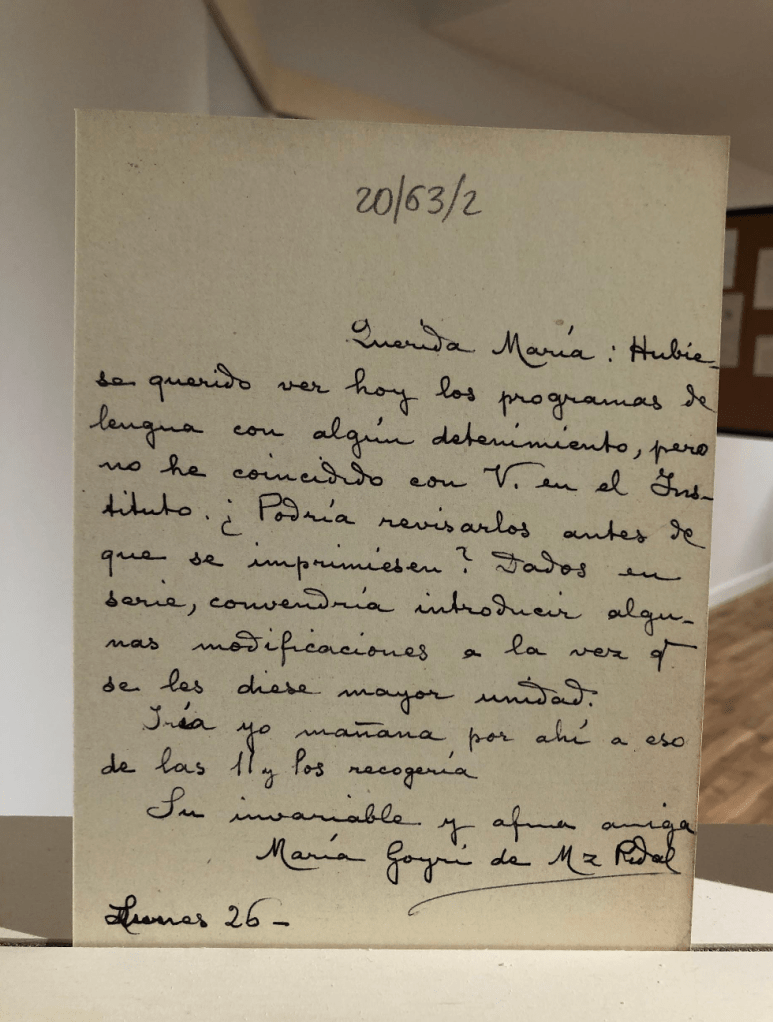 20/63/2
Querida María: Hubie-
se querido ver hoy los programas de
lengua con algún detenimiento, pero
no he coincidido con V. en el Ins-
tituto. ¿Podría revisarlos antes de
que se imprimiesen? Dados en
serie, convendría introducir algu-
nas modificaciones a la vez q
se les diese mayor unidad.
Iría yo mañana por ahí a eso
de las 11 y los recogería
Su invariable y afma amiga
María Goyri de Mz Pidal
Lunes 26-